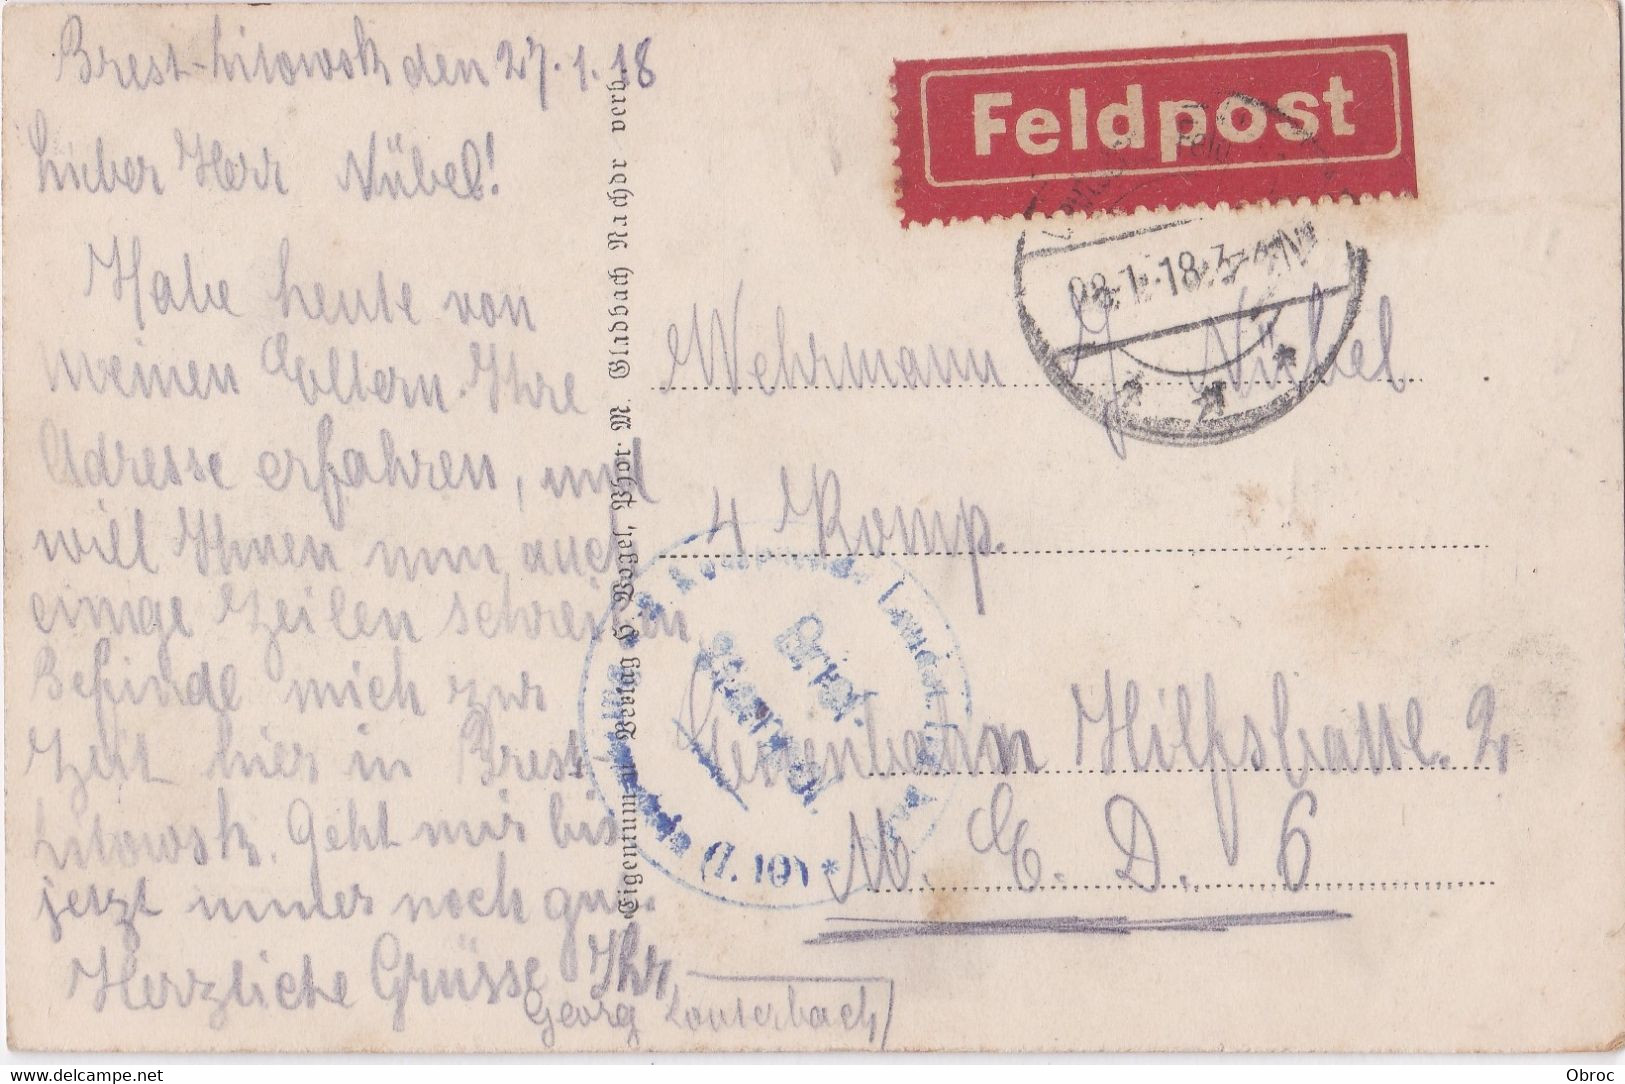 Brest-Litowsk den 27.1.18
Lieber Herr Nübel!
Habe heute von
meinen Eltern Ihre
Adresse erfahren, und
will Ihnen nun auch
einige Zeilen schreiben
Befinde mich zur
Zeit hier in Brest-
Litowsk. Geht mir bis
jetzt immer noch gut.
Herzliche Grüsse Ihr
Georg Lauterbach
Eigentum u. Verlag H. Vogel, Phot. M. Gladbach Nachdr verb.
Feldpost
28.1.18.3-4N
Wehrmann J. Nübel
4 Komp.
Eisenbahn Hilfsbatl. 2
M. E. D. 6
Brief-
stempel.
(Z. 10) *
Obroc
www.delcampe.net